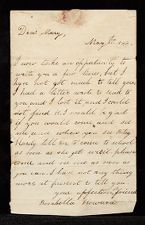 Dear Mary,
May 8th 189
I now take an opportunity to
write you a few lines, but I
have not got much to tell you,
I had a letter wrote to send to
you and I lost it and I could
not find it. I would be glad
if you would come and see
me and when you see
Hardy tell him to come to school
as soon as she get well please
come and see me as soon as
you can I have not any thing
more at present to tell you
your affectionate friend